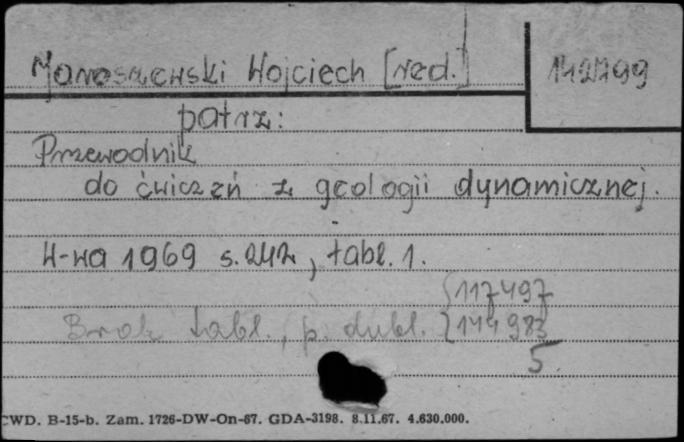 Jaroszewski Wojciech [red.]
142799
patrz:
Przewodnik
do ćwiczeń z geologii dynamicznej.
W-wa 1969 s. 242, tabl. 1.
117497
Brak tabl., p. dubl. 144983
5
CWD. B-15-b. Zam. 1726-DW-On-67. GDA-3198. 8.11.67. 4.630.000.